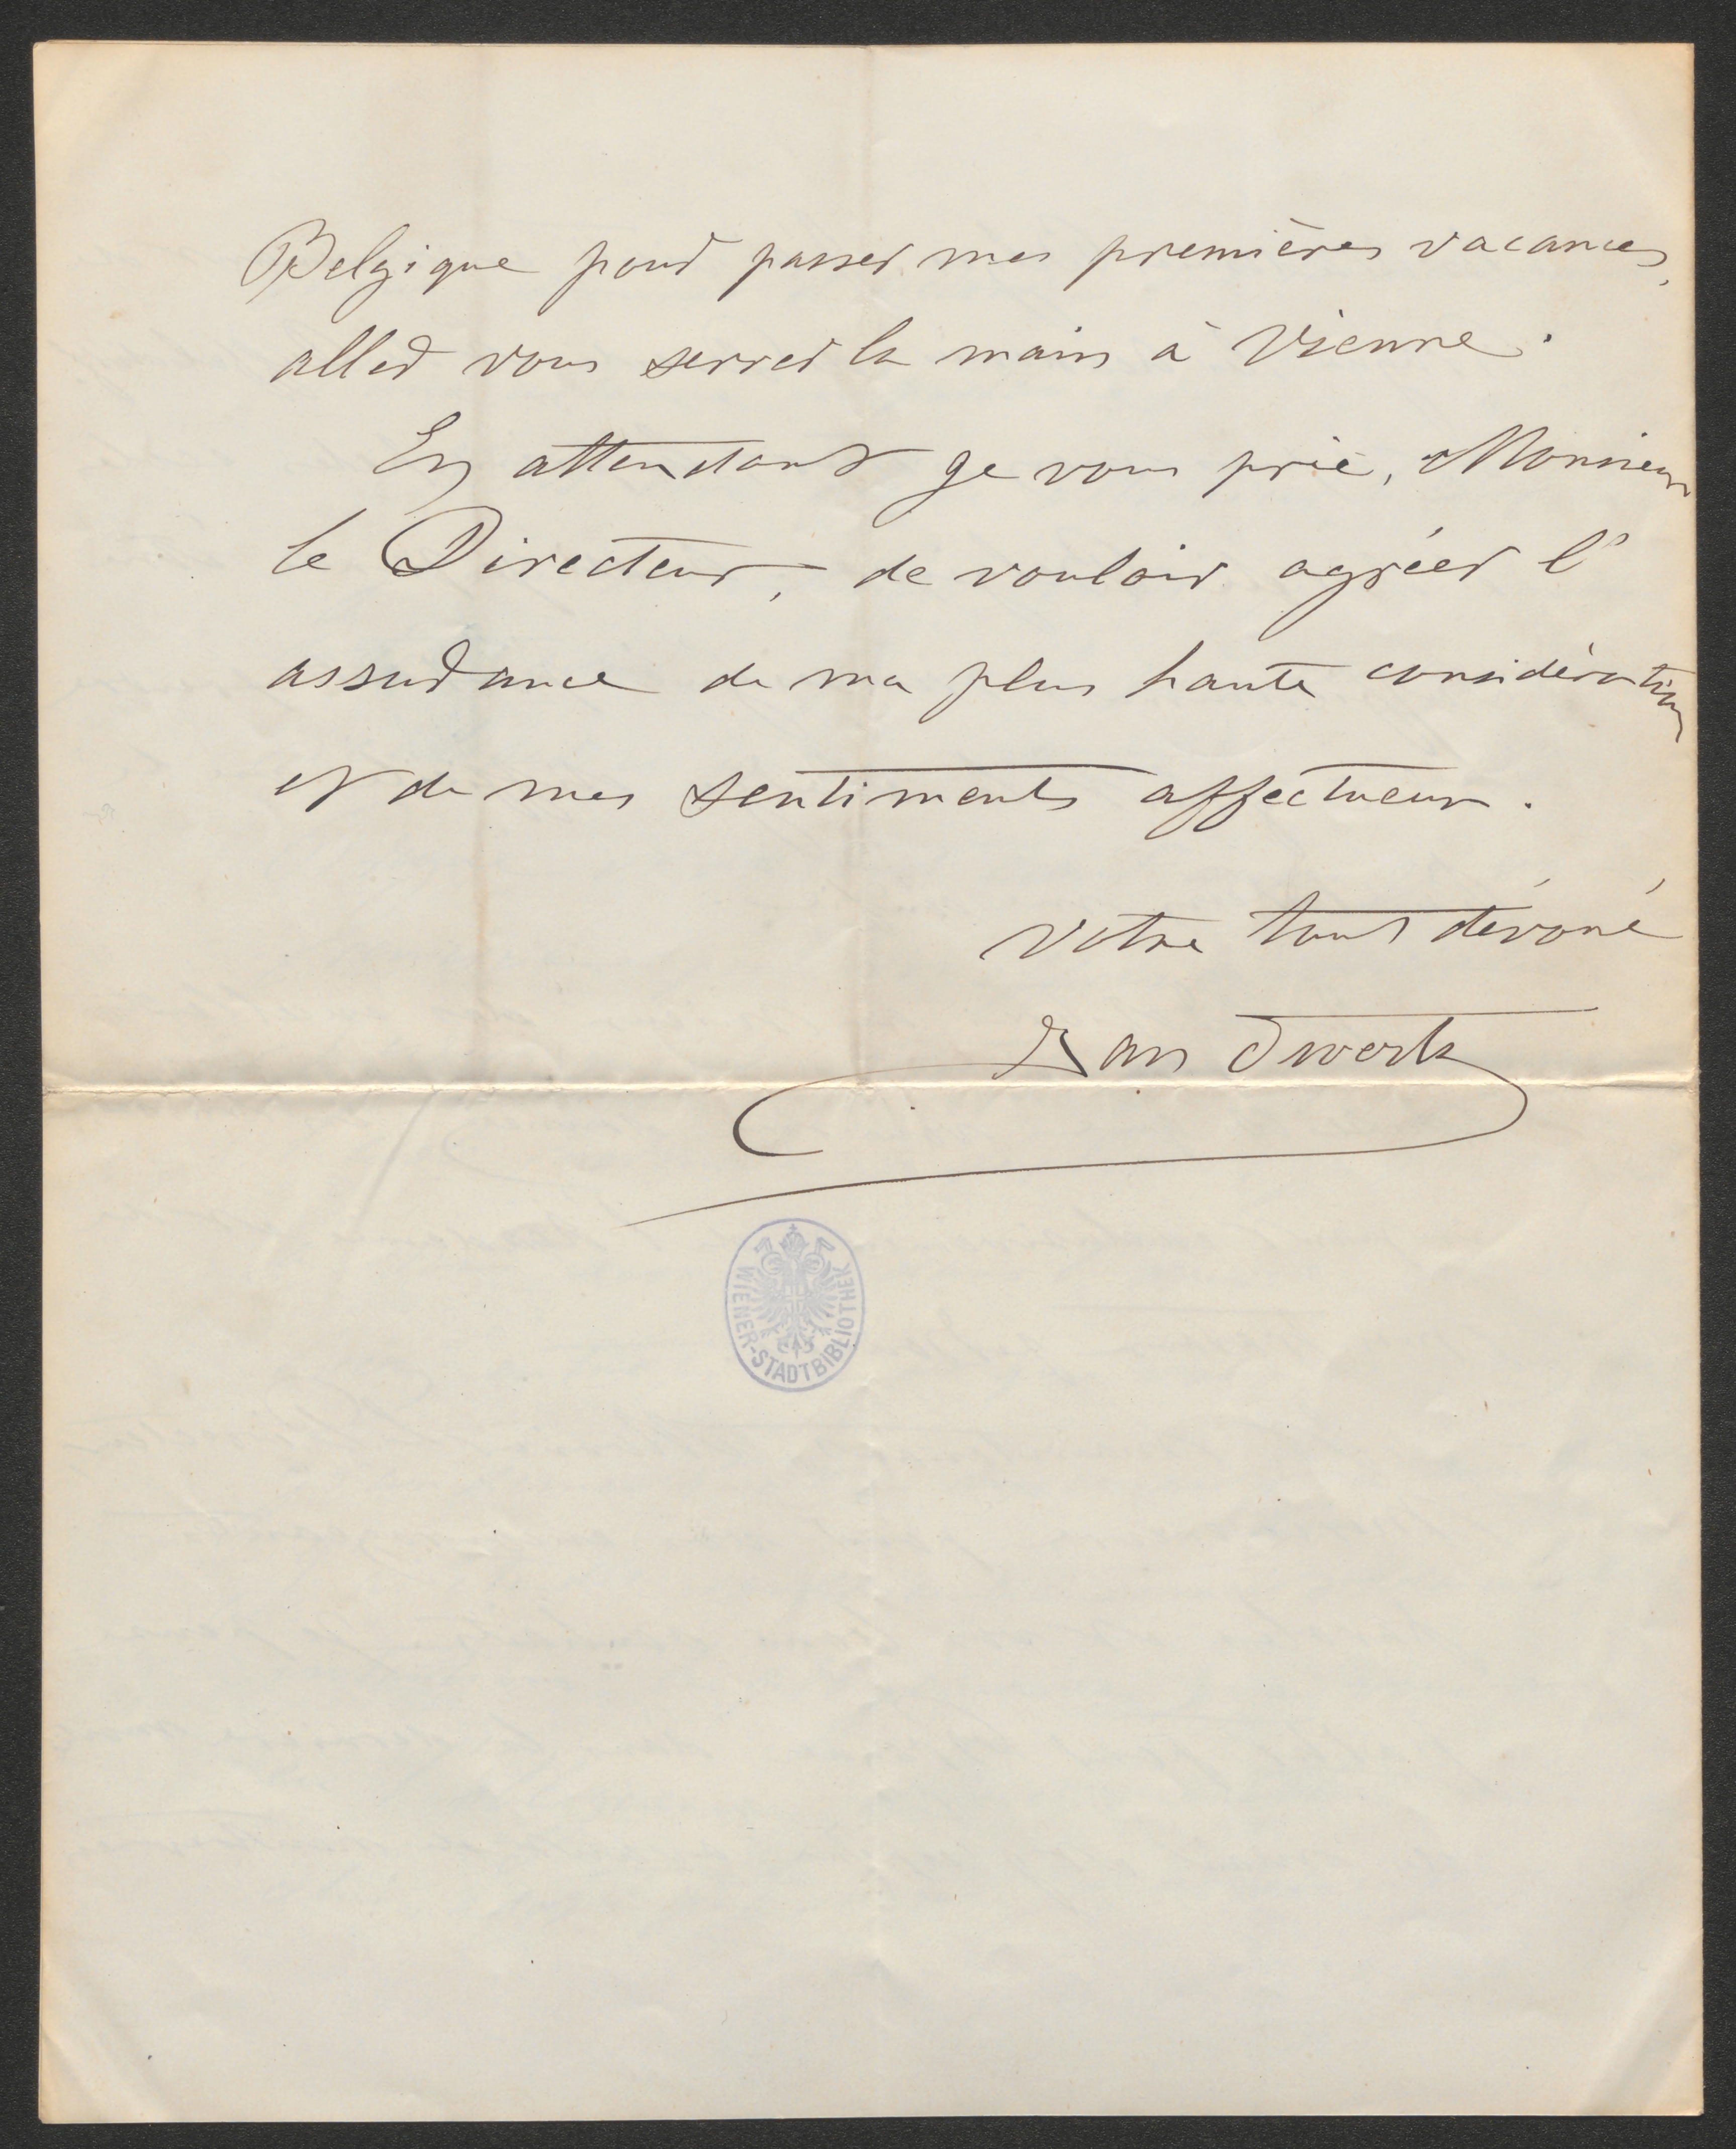 Belgique pour passer mes premières vacances,
aller vous serrer la main à Vienne.
En attendant je vous prie, Monsieur
le Directeur, de vouloir agréer l'
assurance de ma plus haute considération
et de mes sentiments affectueux.
Votre tout dévoué
Van
WIENER-STADTBIBLIOTHEK